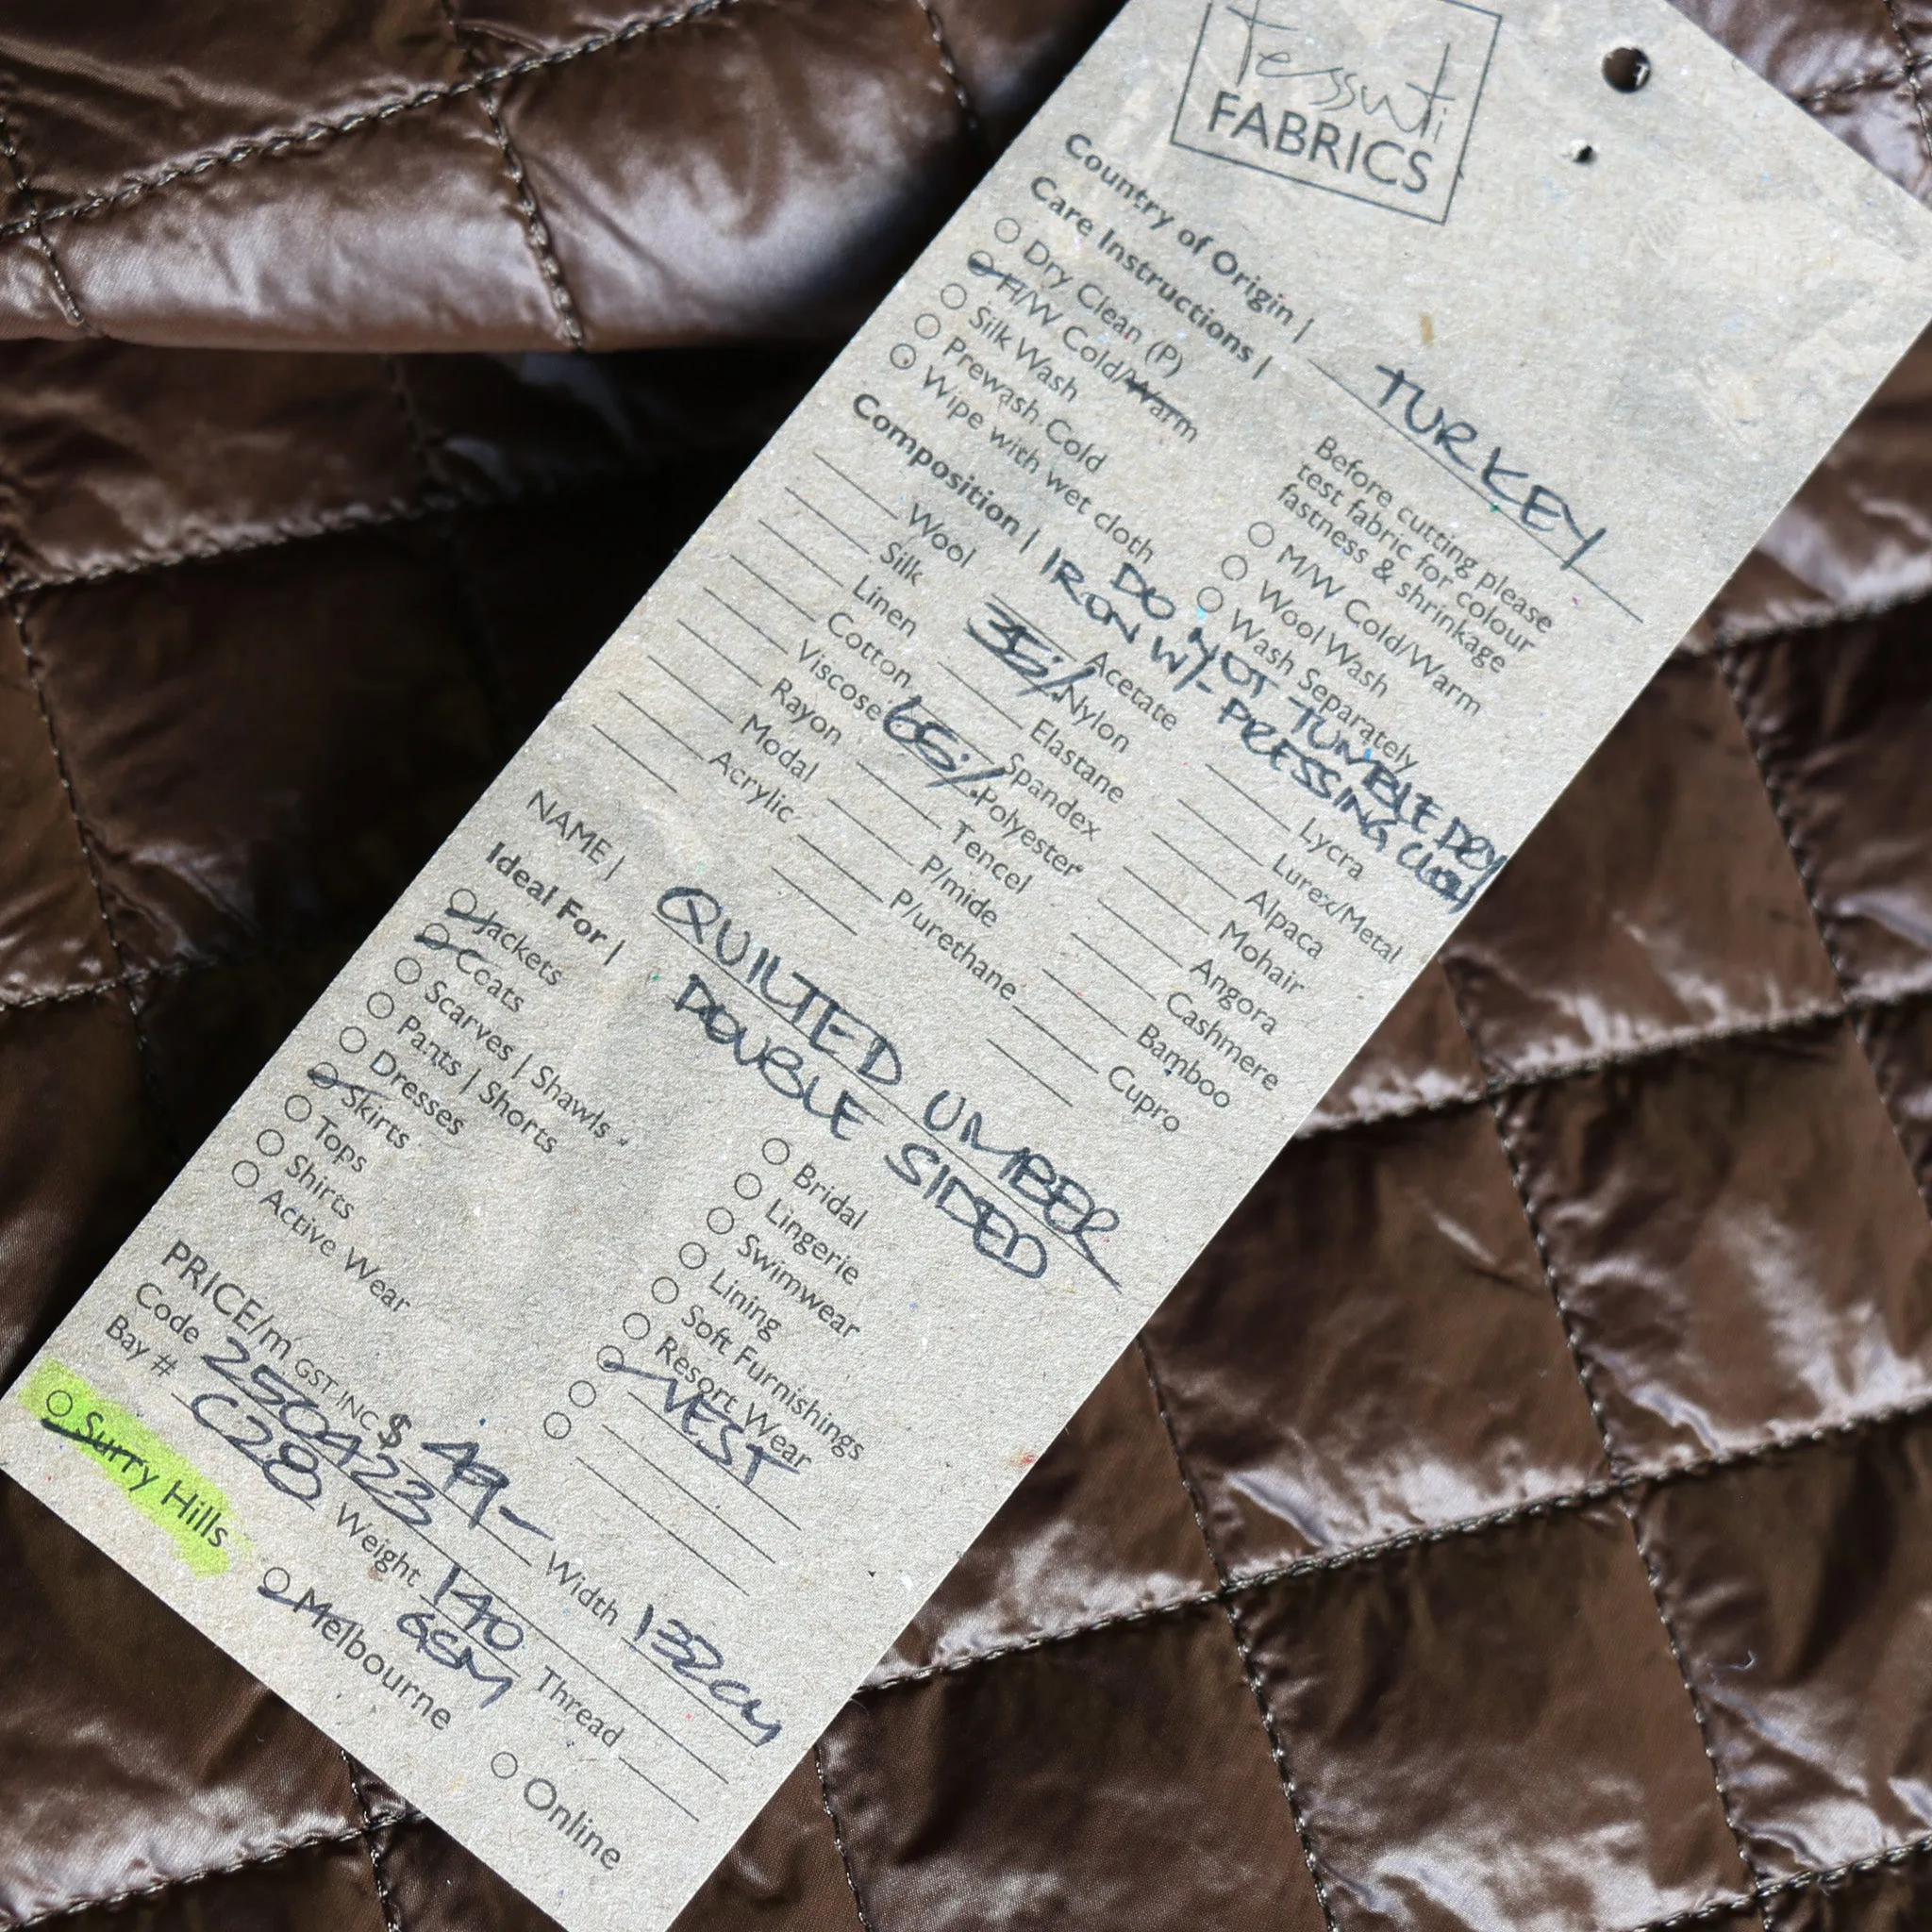 Tessuti
FABRICS
Country of Origin | TURKEY
Care Instructions |
Dry Clean (P)
H/W Cold/Warm
Silk Wash
Prewash Cold
Wipe with wet cloth
Before cutting please
test fabric for colour
fastness & shrinkage
M/W Cold/Warm
Wool Wash
Wash Separately
DO NOT TUMBLE DRY
Composition | IRON W/- PRESSING CLOTH
Wool
Silk
Linen
Cotton
Viscose
Rayon
Modal
Acrylic
Acetate
35% Nylon
Elastane
Spandex
65% Polyester
Tencel
P/mide
P/urethane
Lycra
Lurex/Metal
Alpaca
Mohair
Angora
Cashmere
Bamboo
Cupro
NAME | QUILTED UMBER
DOUBLE SIDED
Ideal For |
Jackets
Coats
Scarves | Shawls
Pants | Shorts
Dresses
Skirts
Tops
Shirts
Active Wear
Bridal
Lingerie
Swimwear
Lining
Soft Furnishings
Resort Wear
VEST
PRICE/m GST INC $ 49-
Width 132cm
Code 250423
Weight 140
GSM
Bay # C28
Thread
Surry Hills
Melbourne
Online